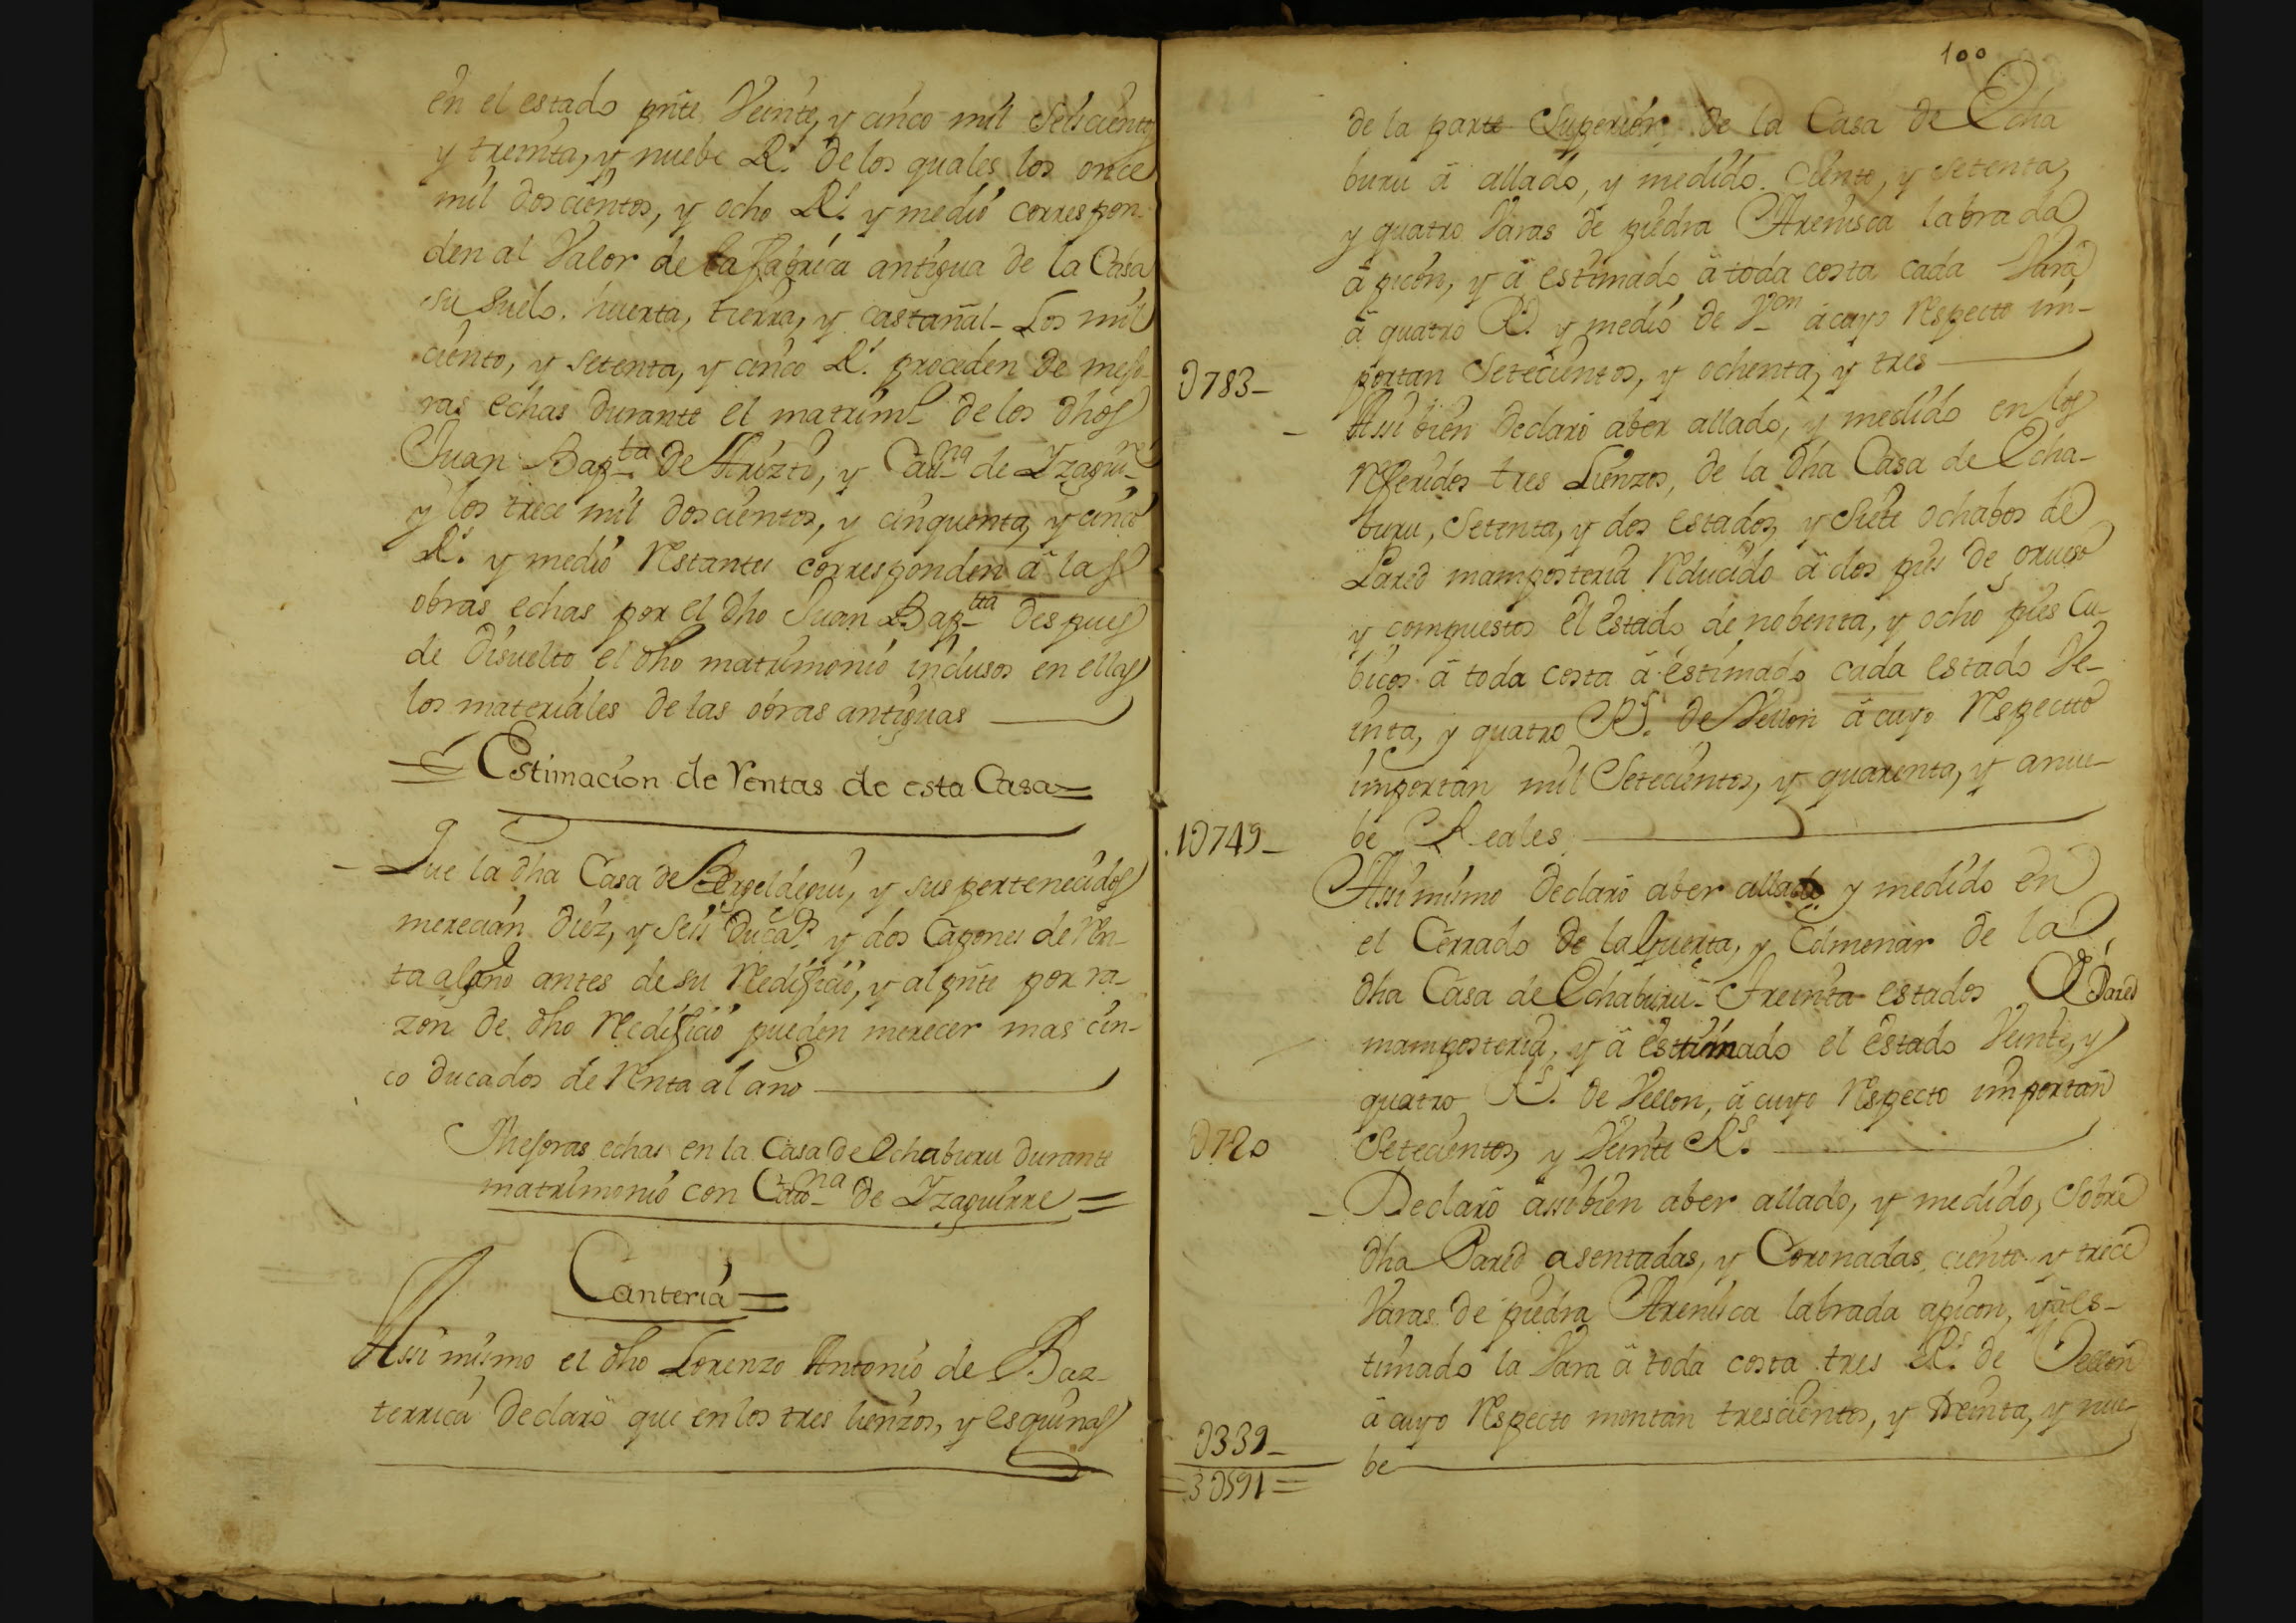 en el estado pn̄te Veinte, y cinco mil Seiscientos
y treinta, y nuebe R.s de los quales los once
mil doscientos, y ocho R.s y medio correspon-
den al Valor de la fabrica antigua de la Casa
su suelo, huerta, tierra, y castañal- Los mil
ciento, y setenta, y cinco R.s proceden de mejo-
ras echas durante el matrim.o de los dhos
Juan Bap.ta de Aruzto, y Cat.na de Yzaguirre
y los trece mil doscientos, y cinquenta, y cinco
R.s y medio restantes corresponden â las
obras echas por el dho Juan Bap.tta despues
de disuelto el dho matrimonio inclusos en ellas
los materiales de las obras antiguas
Estimacion de rentas de esta Casa
Que la dha Casa de y sus pertenecidos
merecian diez, y seis ducad.s y dos Capones de ren-
ta al año antes de su reedificio, y al pn̄te por ra-
zon de dho reedificio pueden merecer mas cin-
co ducados de renta al año
Mejoras echas en la Casa de Echaburu durante
matrimonio con Cat.na de Yzaguirre
Canteria
Assi mismo el dho Lorenzo Antonio de Baz-
terrica declaró que en los tres lienzos, y esquinas
100
de la parte Superior de la Casa de Echa
buru â allado, y medido Ciento, y setenta,
y quatro Varas de piedra Arenisca labrada
â picon, y â estimado â toda costa cada Vara
â quatro R.s y medio de V.on â cuyo respecto im-
0783- portan Setecientos, y ochenta, y tres
Assi bien declaró aber allado, y medido en los
referidos tres Lienzos, de la dha Casa de Echa-
buru, Setenta, y dos estados, y siete ochabos de
Pared mamposteria reducido â dos pies de grueso
y compuesto el estado de nobenta, y ocho pies Cu-
bicos â toda costa â estimado cada estado Ve-
inta, y quatro R.s de Vellon â cuyo respecto
importan mil Setecientos, y quarenta, y anue-
10749- be Reales
Assi mismo declaró aber allado y medido en
el Cerrado de la huerta, y Colmenar de la
dha Casa de Echaburu- Treinta estados de Pared
mamposteria, y â estimado el estado Veinte, y
quatro R.s de Vellon, â cuyo respecto importan
0720 Setecientos, y Veinte R.s
Declaró assibien aber allado, y medido, sobre
dha Pared asentadas, y Coronadas ciento y trece
Varas de piedra Arenisca labrada apicon, y â es-
timado la Vara â toda costa tres R.s de Vellon
â cuyo respecto montan trescientos, y treinta, y nue-
0339- be
=30591=